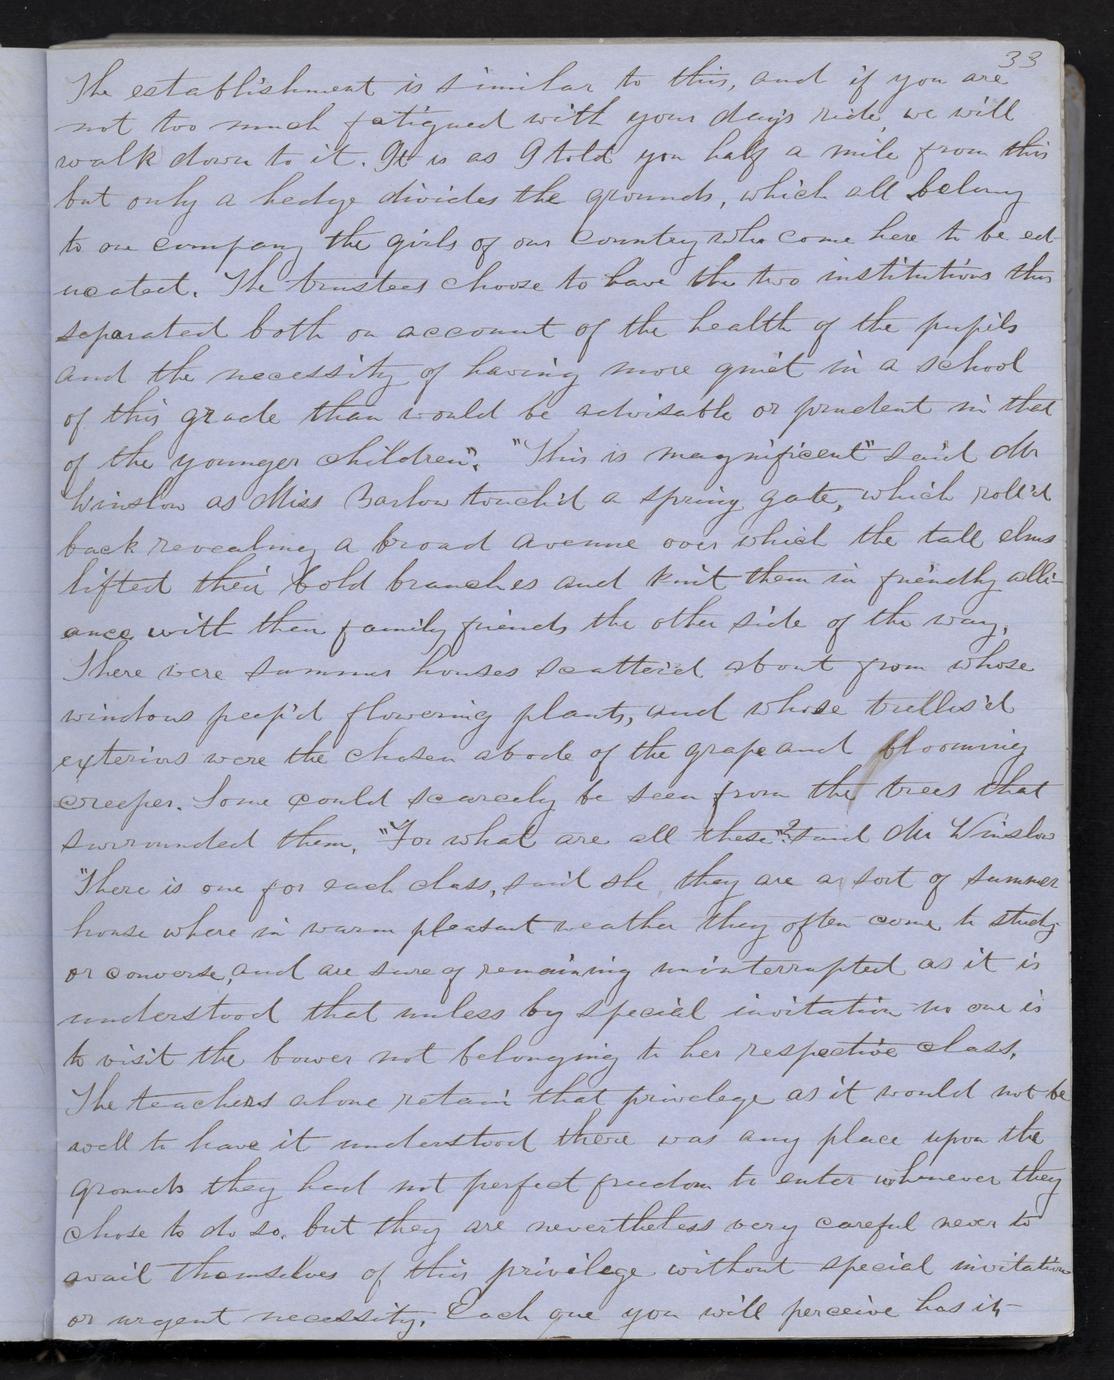 33
The establishment is similar to this, and if you are
not too much fatigued with your day's ride, we will
walk down to it. It is as I told you half a mile from this
but only a hedge divides the grounds, which all belong
to one company the girls of our country who come here to be ed-
ucated. The trustees choose to have the two institutions thus
separated both on account of the health of the pupils
and the necessity of having more quiet in a school
of this grade than would be advisable or prudent in that
of the younger children". "This is magnificent" said Mr
Winslow as Miss Barlow touch'd a spring gate, which roll'd
back revealing a broad avenue over which the tall elms
lifted their bold branches and knit them in friendly alli-
ance with their family friends the other side of the way.
There were summer houses scatter'd about from whose
windows peep'd flowering plants, and whose trellis'd
exteriors were the chosen abode of the grape and blooming
creeper. Some could scarcely be seen from the trees that
surrounded them. "For what are all these"? said Mr Winslow
"There is one for each class, said she, they are a sort of summer
house where in warm pleasant weather they often come to study
or converse, and are sure of remaining uninterrupted as it is
understood that unless by special invitation no one is
to visit the bower not belonging to her respective class.
The teachers alone retain that privelege as it would not be
well to have it understood there was any place upon the
grounds they had not perfect freedom to enter whenever they
chose to do so. but they are nevertheless very careful never to
avail themselves of this privilege without special invitation
or urgent necessity. Each one you will perceive has its